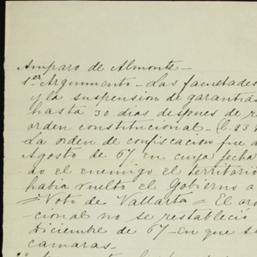 Amparo de Almonte—
1er Argumento—Las facultades
y la suspension de garantias
hasta 30 dias despues de r
orden constitucional—(l. 23
La orden de confiscacion fue d
Agosto de 67 en cuya fecha
do el enemigo el territorio
habia vuelto el Gobierno a
Voto de Vallarta= El or
cional no se restableció
Diciembre de 67—en que s
camaras.—